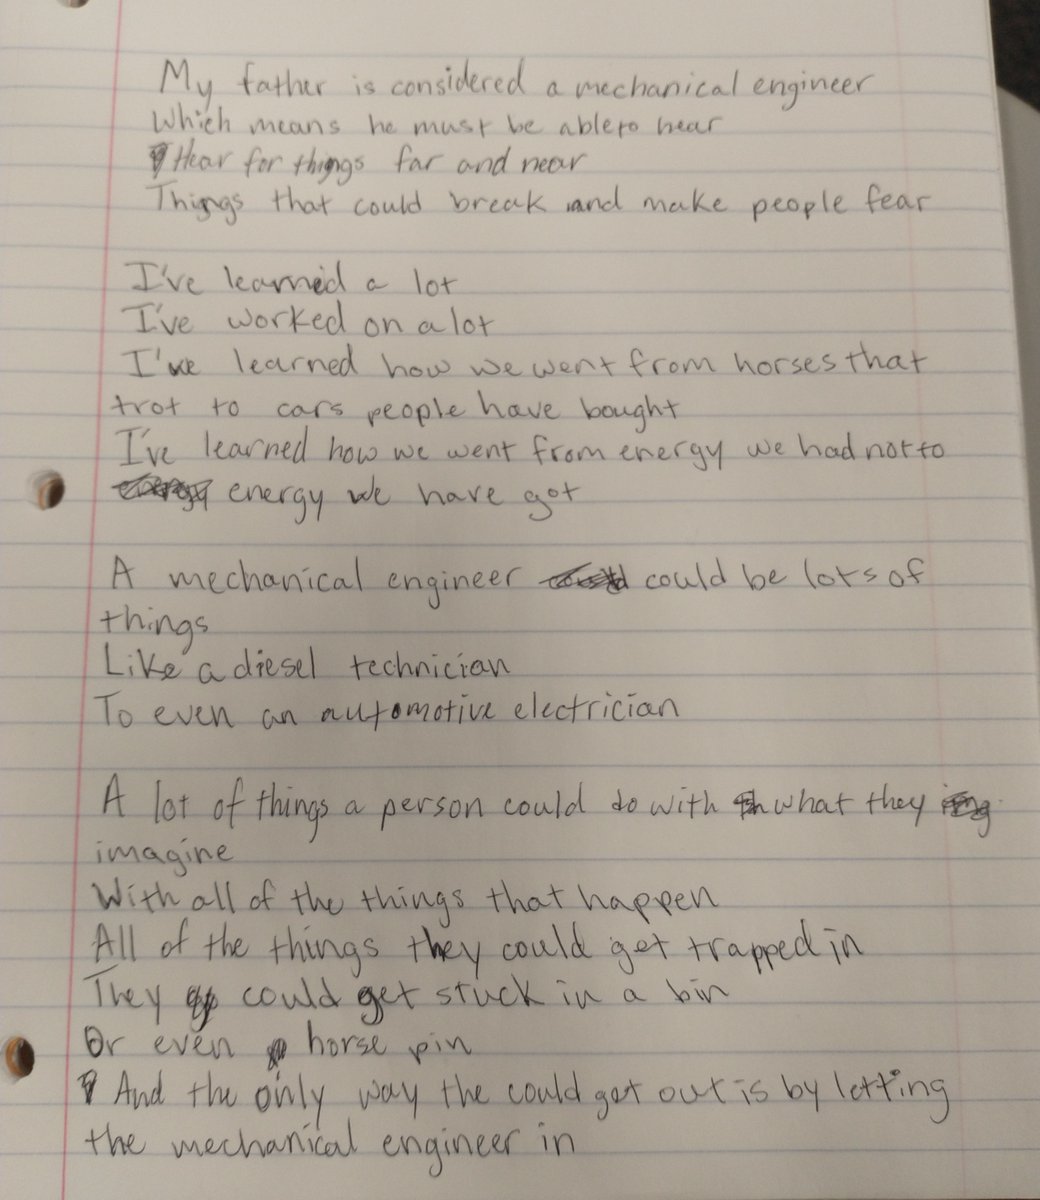 My father is considered a mechanical engineer
Which means he must be able to hear
Hear for things far and near
Things that could break and make people fear
I've learned a lot
I've worked on a lot
I've learned how we went from horses that
trot to cars people have bought
I've learned how we went from energy we had not to
energy we have got
A mechanical engineer could be lots of
things
Like a diesel technician
To even an automotive electrician
A lot of things a person could do with what they
imagine
With all of the things that happen
All of the things they could get trapped in
They could get stuck in a bin
Or even horse pin
And the only way the could get out is by letting
the mechanical engineer in